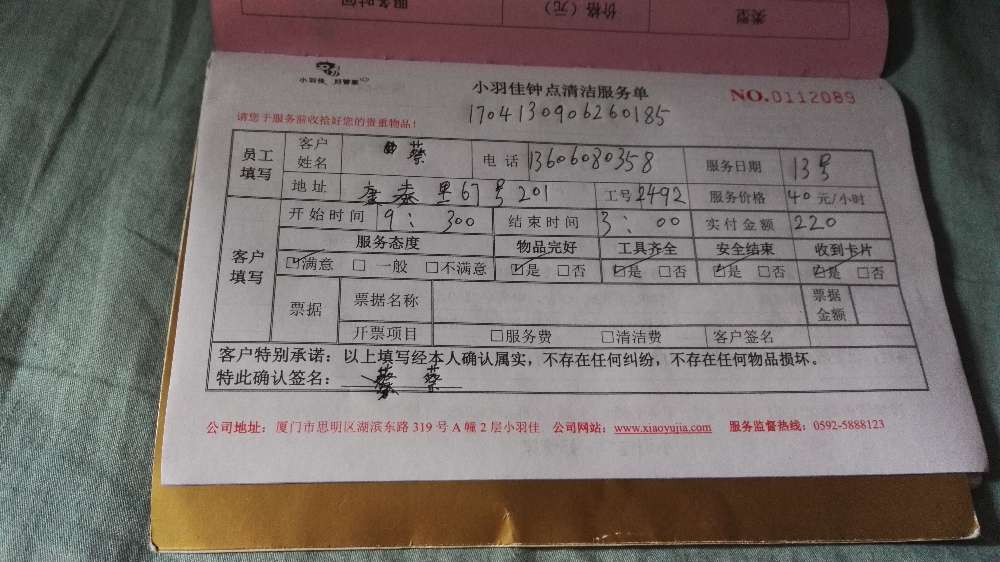 服务时间 价格（元） 类型
小羽佳 好管家
小羽佳钟点清洁服务单 NO.0112089
1704130906260185
请您于服务前收拾好您的贵重物品！
员工填写 客户姓名 蔡 电话 13606080358 服务日期 13号
地址 67号201 工号2492 服务价格 40元/小时
客户填写 开始时间 9：300 结束时间 3：00 实付金额 220
服务态度 物品完好 工具齐全 安全结束 收到卡片
☑满意 □一般 □不满意 ☑是 □否 ☑是 □否 ☑是 □否 ☑是 □否
票据 票据名称 票据金额
开票项目 □服务费 □清洁费 客户签名
客户特别承诺：以上填写经本人确认属实，不存在任何纠纷，不存在任何物品损坏。
特此确认签名： 蔡
公司地址：厦门市思明区湖滨东路319号A幢2层小羽佳 公司网站：www.xiaoyujia.com 服务监督热线：0592-5888123